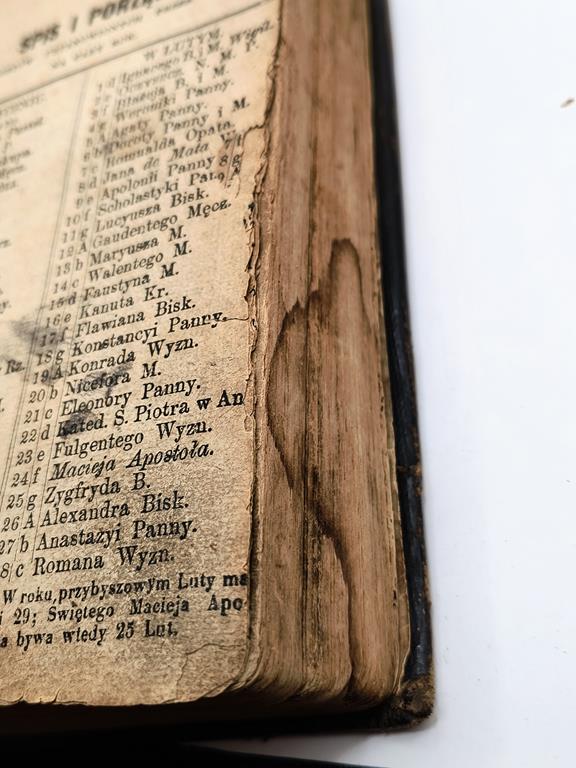 SPIS I
W LUTYM.
1 d Ignacego B. i M. Wigil.
2 e Oczyszcz. N. M. P.
3 f Błażeja B. i M.
4 g Weroniki Panny.
5 A Agaty Panny.
6 b Doroty Panny i M.
7 c Romualda Opata.
8 d Jana de Mata
9 e Apolonii Panny
10 f Scholastyki
11 g Lucyusza Bisk.
12 A Gaudentego Męcz.
13 b Maryusza M.
14 c Walentego M.
15 d Faustyna M.
16 e Kanuta Kr.
17 f Flawiana Bisk.
18 g Konstancyi Panny.
19 A Konrada Wyzn.
20 b Nicefora M.
21 c Eleonory Panny.
22 d Kated. S. Piotra w An
23 e Fulgentego Wyzn.
24 f Macieja Apostoła.
25 g Zygfryda B.
26 A Alexandra Bisk.
27 b Anastazyi Panny.
8 c Romana Wyzn.
W roku przybyszowym Luty ma
i 29; Swiętego Macieja Apo
a bywa wtedy 25 Lut.